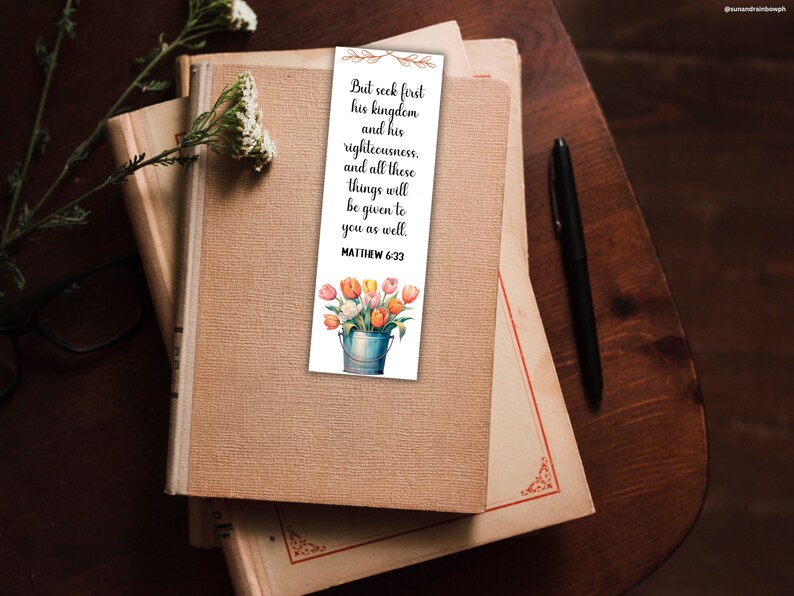 @sunandrainbowph
But seek first
his kingdom
and his
righteousness,
and all these
things will
be given to
you as well.
MATTHEW 6:33